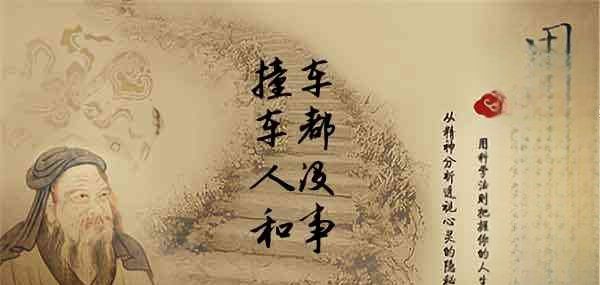 撞车人和
车都没事
用科学法则把握你的人生
从精神分析透视心灵的隐秘